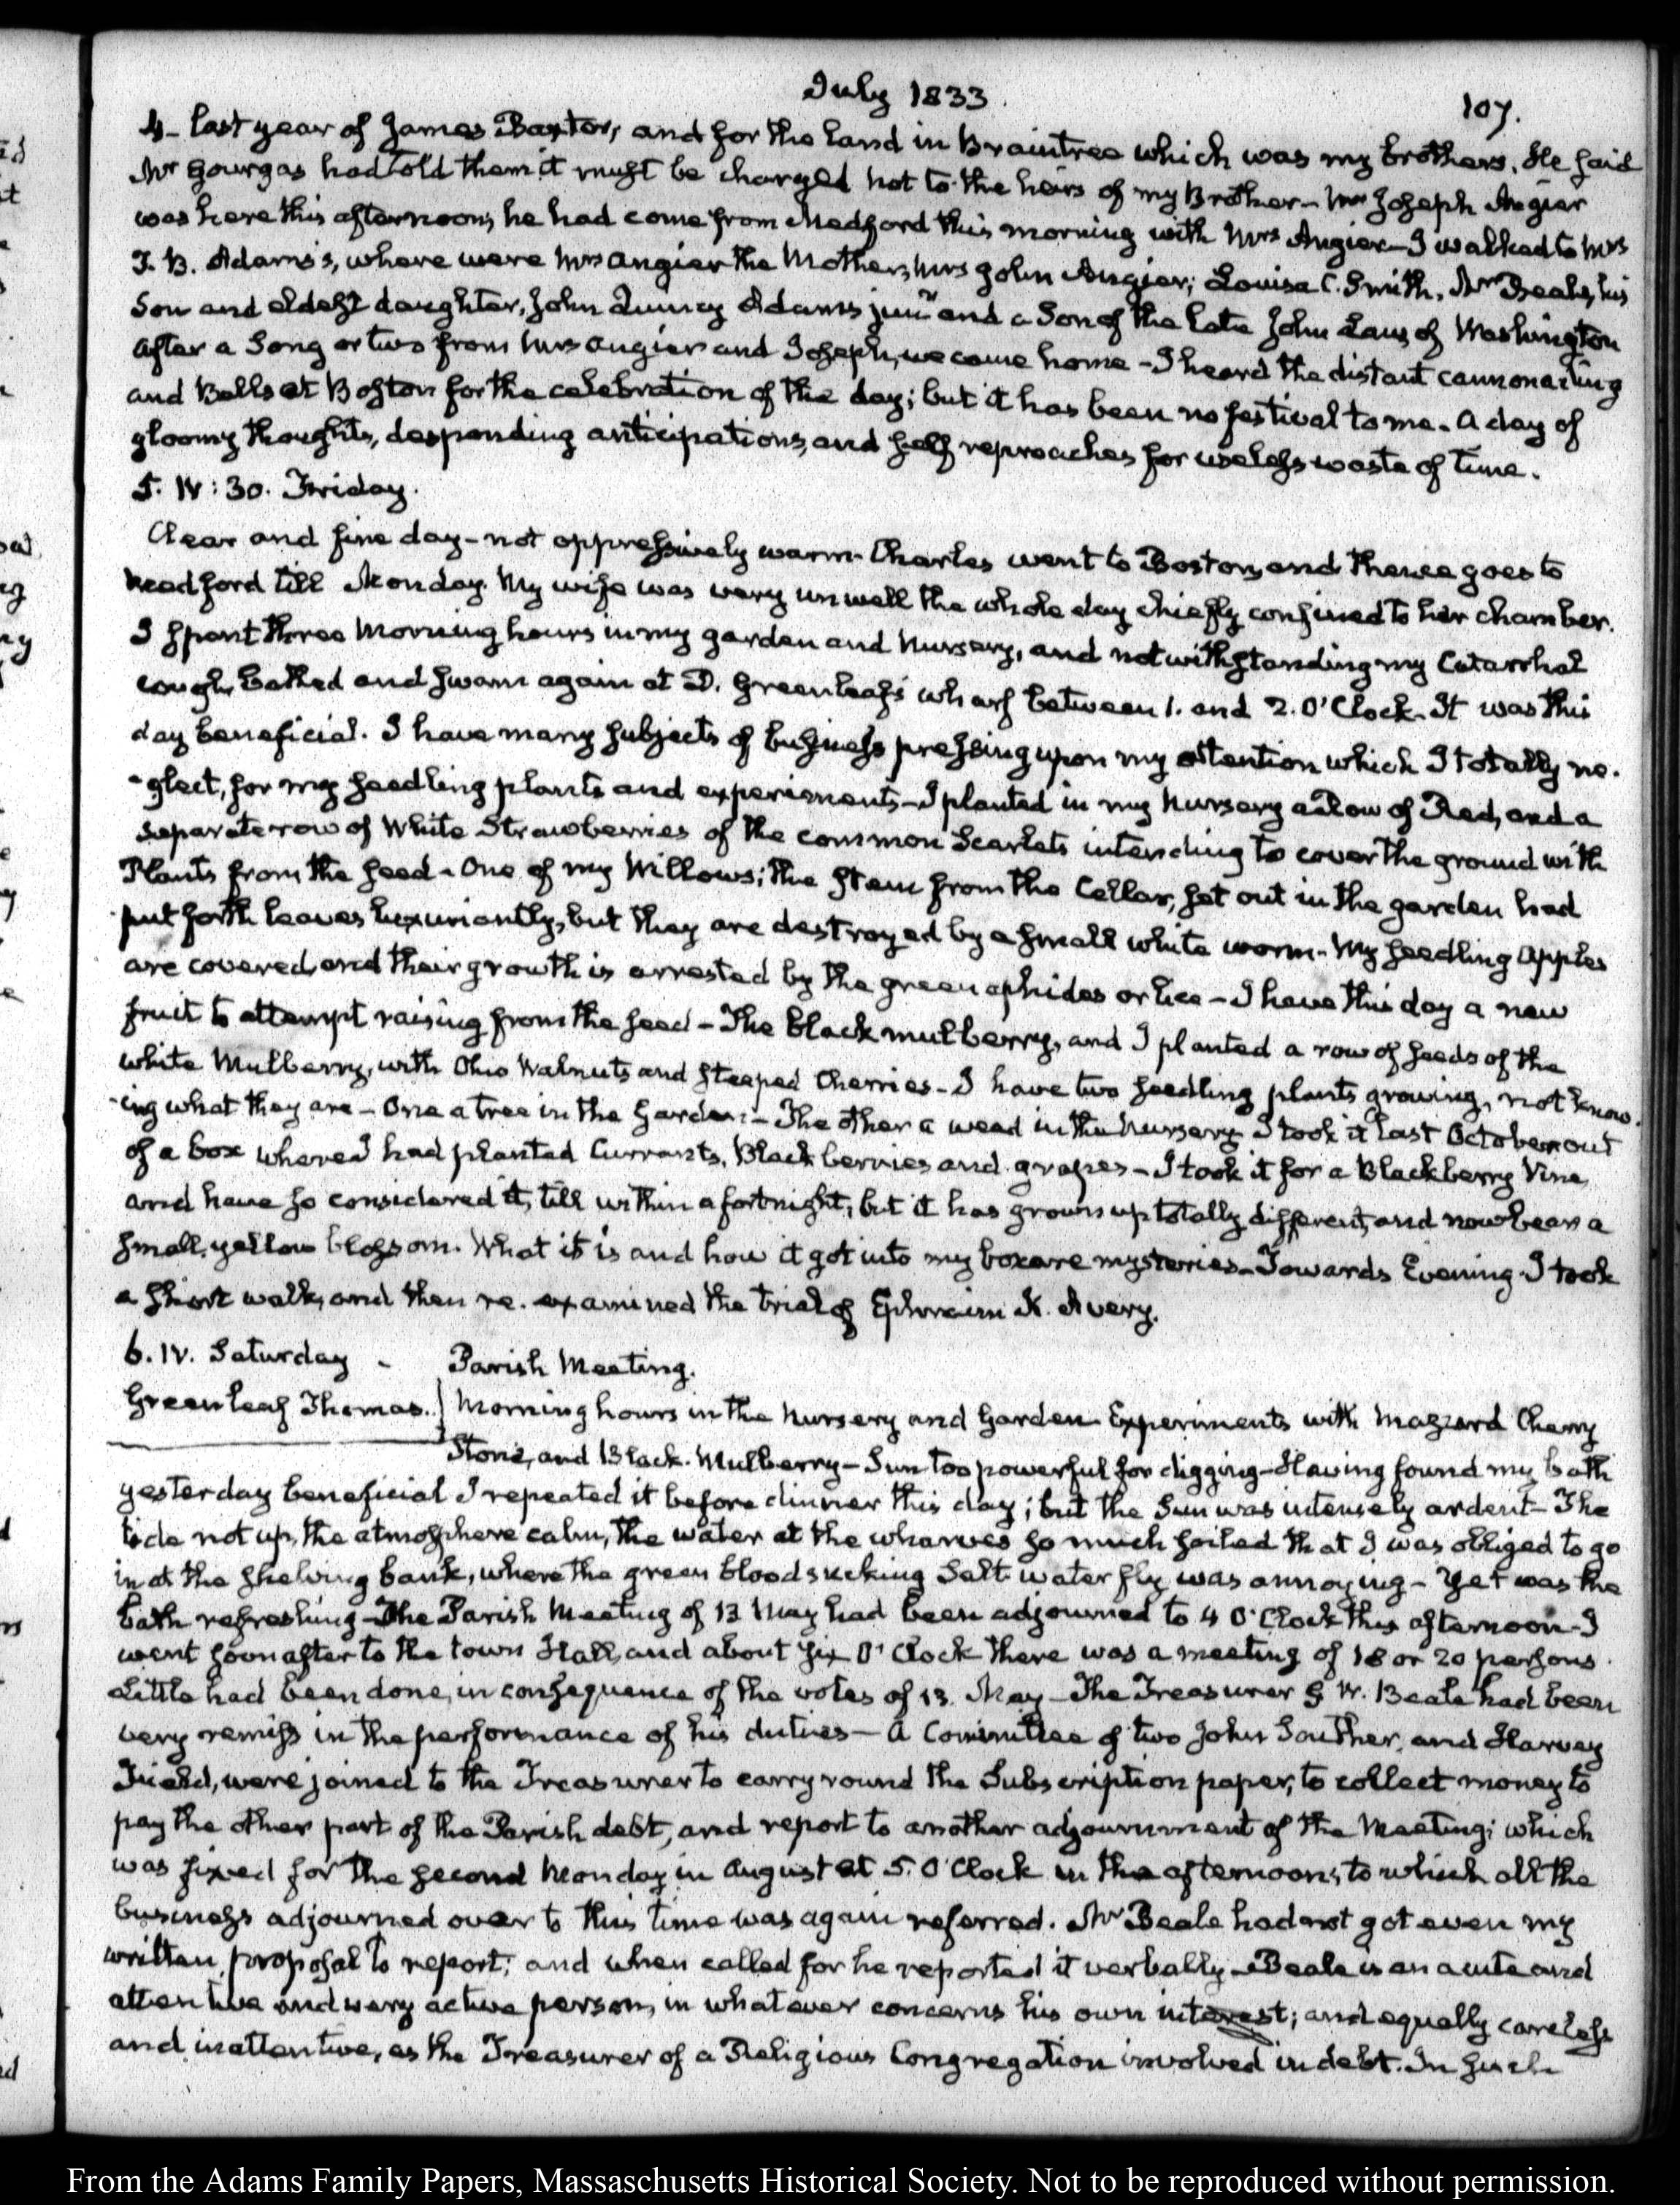 July 1833.
107.
4- last year of James Baxter, and for the land in Braintree which was my brothers. He said
Mr Gourgas had told them it must be charged not to the heirs of my Brother- Mr Joseph Angier
was here this afternoon, he had come from Medford this morning with Mrs Angier- I walked to Mrs
T. B. Adams's, where were Mrs Angier the Mother, Mrs John Angier; Louisa C. Smith, Mr Beale, his
Son and eldest daughter, John Quincy Adams junr and a Son of the late John Law, of Washington
After a Song or two from Mrs Angier and Joseph, we came home - I heard the distant cannonading
and Bells at Boston for the celebration of the day; but it has been no festival to me. A day of
gloomy thoughts, desponding anticipations, and self reproaches for useless waste of time.
5. IV: 30. Friday.
Clear and fine day - not oppressively warm. Charles went to Boston, and thence goes to
Medford till Monday. My wife was very unwell the whole day chiefly confined to her chamber.
I spent three Morning hours in my garden and Nursery, and notwithstanding my Catarrhal
cough, bathed and swam again at D. Greenleaf's wharf between 1. and 2. O'Clock. It was this
day beneficial. I have many subjects of business pressing upon my attention which I totally ne-
-glect, for my seedling plants and experiments - I planted in my Nursery a Row of Red, and a
separate row of White Strawberries of the common Scarlets intending to cover the ground with
Plants from the seed - One of my Willows; the stem from the Cellar, set out in the garden had
put forth leaves luxuriantly, but they are destroyed by a small white worm - My seedling Apples
are covered, and their growth is arrested by the green aphides or lice - I have this day a new
fruit to attempt raising from the seed - The black mulberry, and I planted a row of seeds of the
white Mulberry, with Ohio Walnuts and steeped Cherries - I have two seedling plants growing, not know-
-ing what they are - One a tree in the Garden - The other a weed in the Nursery I took it last October out
of a box where I had planted Currants, Blackberries and grapes - I took it for a Blackberry Vine
and have so considered it, till within a fortnight, but it has grown up totally different, and now bears a
small, yellow blossom. What it is and how it got into my box are mysteries - Towards Evening I took
a short walk, and then re-examined the trial of Ephraim K. Avery.
6. IV. Saturday - Parish Meeting.
Greenleaf Thomas. Morning hours in the Nursery and Garden. Experiments with Mazzard Cherry
Stone, and Black Mulberry - Sun too powerful for digging - Having found my bath
yesterday beneficial I repeated it before dinner this day; but the Sun was intensely ardent - The
tide not up, the atmosphere calm, the water at the wharves so much soiled that I was obliged to go
in at the shelving bank, where the green bloodsucking Salt water fly was annoying - Yet was the
bath refreshing - The Parish Meeting of 13 May had been adjourned to 4 O'Clock this afternoon - I
went soon after to the town Hall, and about six O'Clock there was a meeting of 18 or 20 persons.
Little had been done, in consequence of the votes of 13. May - The Treasurer G W. Beale had been
very remiss in the performance of his duties - A Committee of two John Souther, and Harvey
Field, were joined to the Treasurer to carry round the Subscription paper, to collect money to
pay the other part of the Parish debt, and report to another adjournment of the Meeting; which
was fixed for the second Monday in August at 5. O'Clock in the afternoon, to which all the
business adjourned over to this time was again referred. Mr Beale had not got even my
written proposal to report; and when called for he reported it verbally - Beale is an acute and
attentive and very active person, in whatever concerns his own interest; and equally careless
and inattentive, as the Treasurer of a Religious Congregation involved in debt. In such
From the Adams Family Papers, Massachusetts Historical Society. Not to be reproduced without permission.